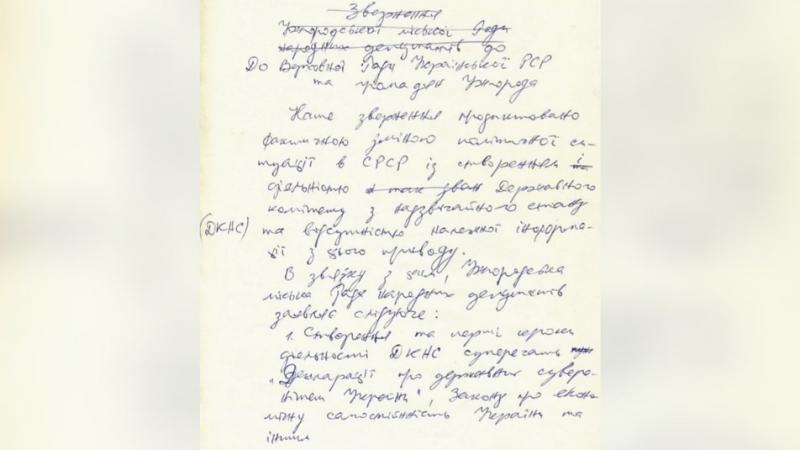 Звернення
Ужгородської міської Ради
народних депутатів до
До Верховної Ради Української РСР
та громадян Ужгорода
Наше звернення продиктовано
фактичною зміною політичної си-
туації в СРСР із створенням і
діяльністю так зван Державного
комітету з надзвичайного стану
(ДКНС) та відсутністю належної інформа-
ції з цього приводу.
В зв'язку з цим, Ужгородська
міська Рада народних депутатів
заявляє слідуюче:
1. Створення та перші кроки
діяльності ДКНС суперечать
"Декларації про державний сувере-
нітет України", Закону про еконо-
мічну самостійність України та
іншим